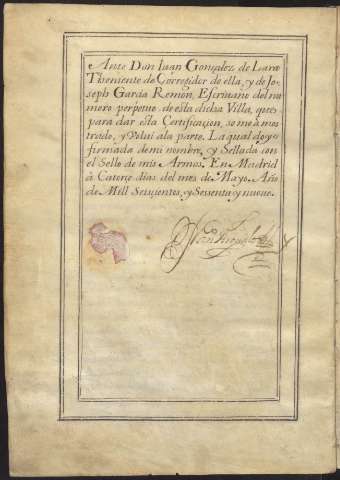 Ante Don Iuan Gonzalez de Lara
Theniente de Corregidor de ella, y de Jo-
seph Garcia Remon, Escriuano del nu
mero perpetuo de esta dicha Villa, que
para dar esta Certificaçion, se me a mos
trado, y Volui a la parte. La qual doy
firmada de mi nombre, y Sellada con
el Sello de mis Armas. En Madrid
à Catorçe dias del mes de Mayo. Año
de Mill Seiscientos, y Sesenta y nueue.